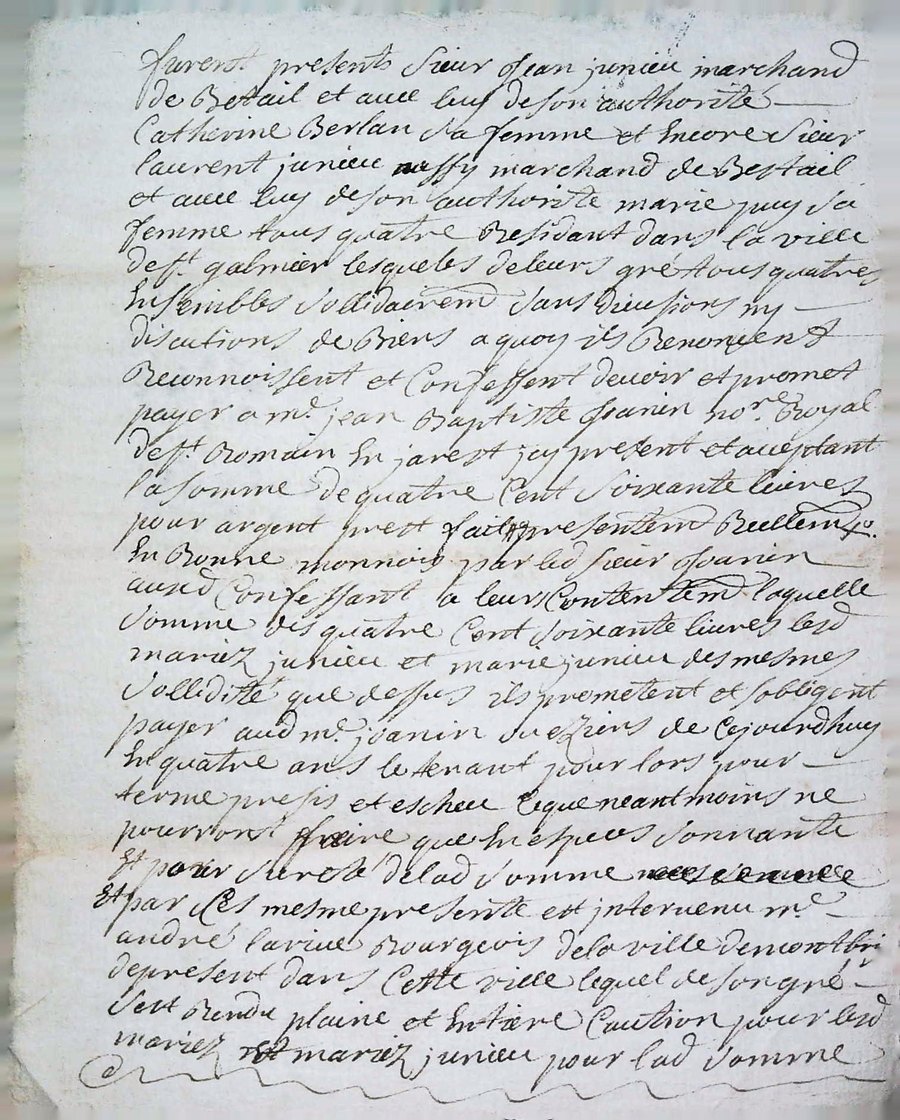 furent presents sieur jean junieu marchand
de Betail et avec luy de son authorité
Catherine Berlan sa femme et Encore sieur
laurent junieu aussy marchand de Bestail
et avec luy de son authorité marie puy sa
femme tous quatre Residant dans la ville
de st. galmier lesquels de leurs gré tous quatres
Ensembles sollidairemt sans divisions ny
discutions de Biens a quoy ils Renonçent
Reconnoissent et Confessent devoir et promet
payer a me. jean Baptiste joanin nore. Royal
de st. Romain En jarest jcy present et acceptant
la somme de quatre Cent soixante livres
pour argent prest fait presentemt Reellemt
En Bonne monnois par led sieur joanin
ausd Confessant a leurs Contentemt laquelle
somme des quatre Cent soixante livres lesd
mariez junieu et marie junieu des mesmes
solliditté que dessus ils prometent et sobligent
payer aud me. joanin ou es siens de Cejourdhuy
En quatre ans le tenant pour lors pour
terme prefis et escheu Ceque neantmoins ne
pourront faire que En especes sonnante
Et pour sureté de lad somme
Et par Ces mesme presente est jntervenu me
andré larive Bourgeois de la ville de montbri
de present dans Cette ville lequel de son gré
sest Rendu plaine et Entiere Caution pour lesd
mariez et mariez junieu pour lad somme